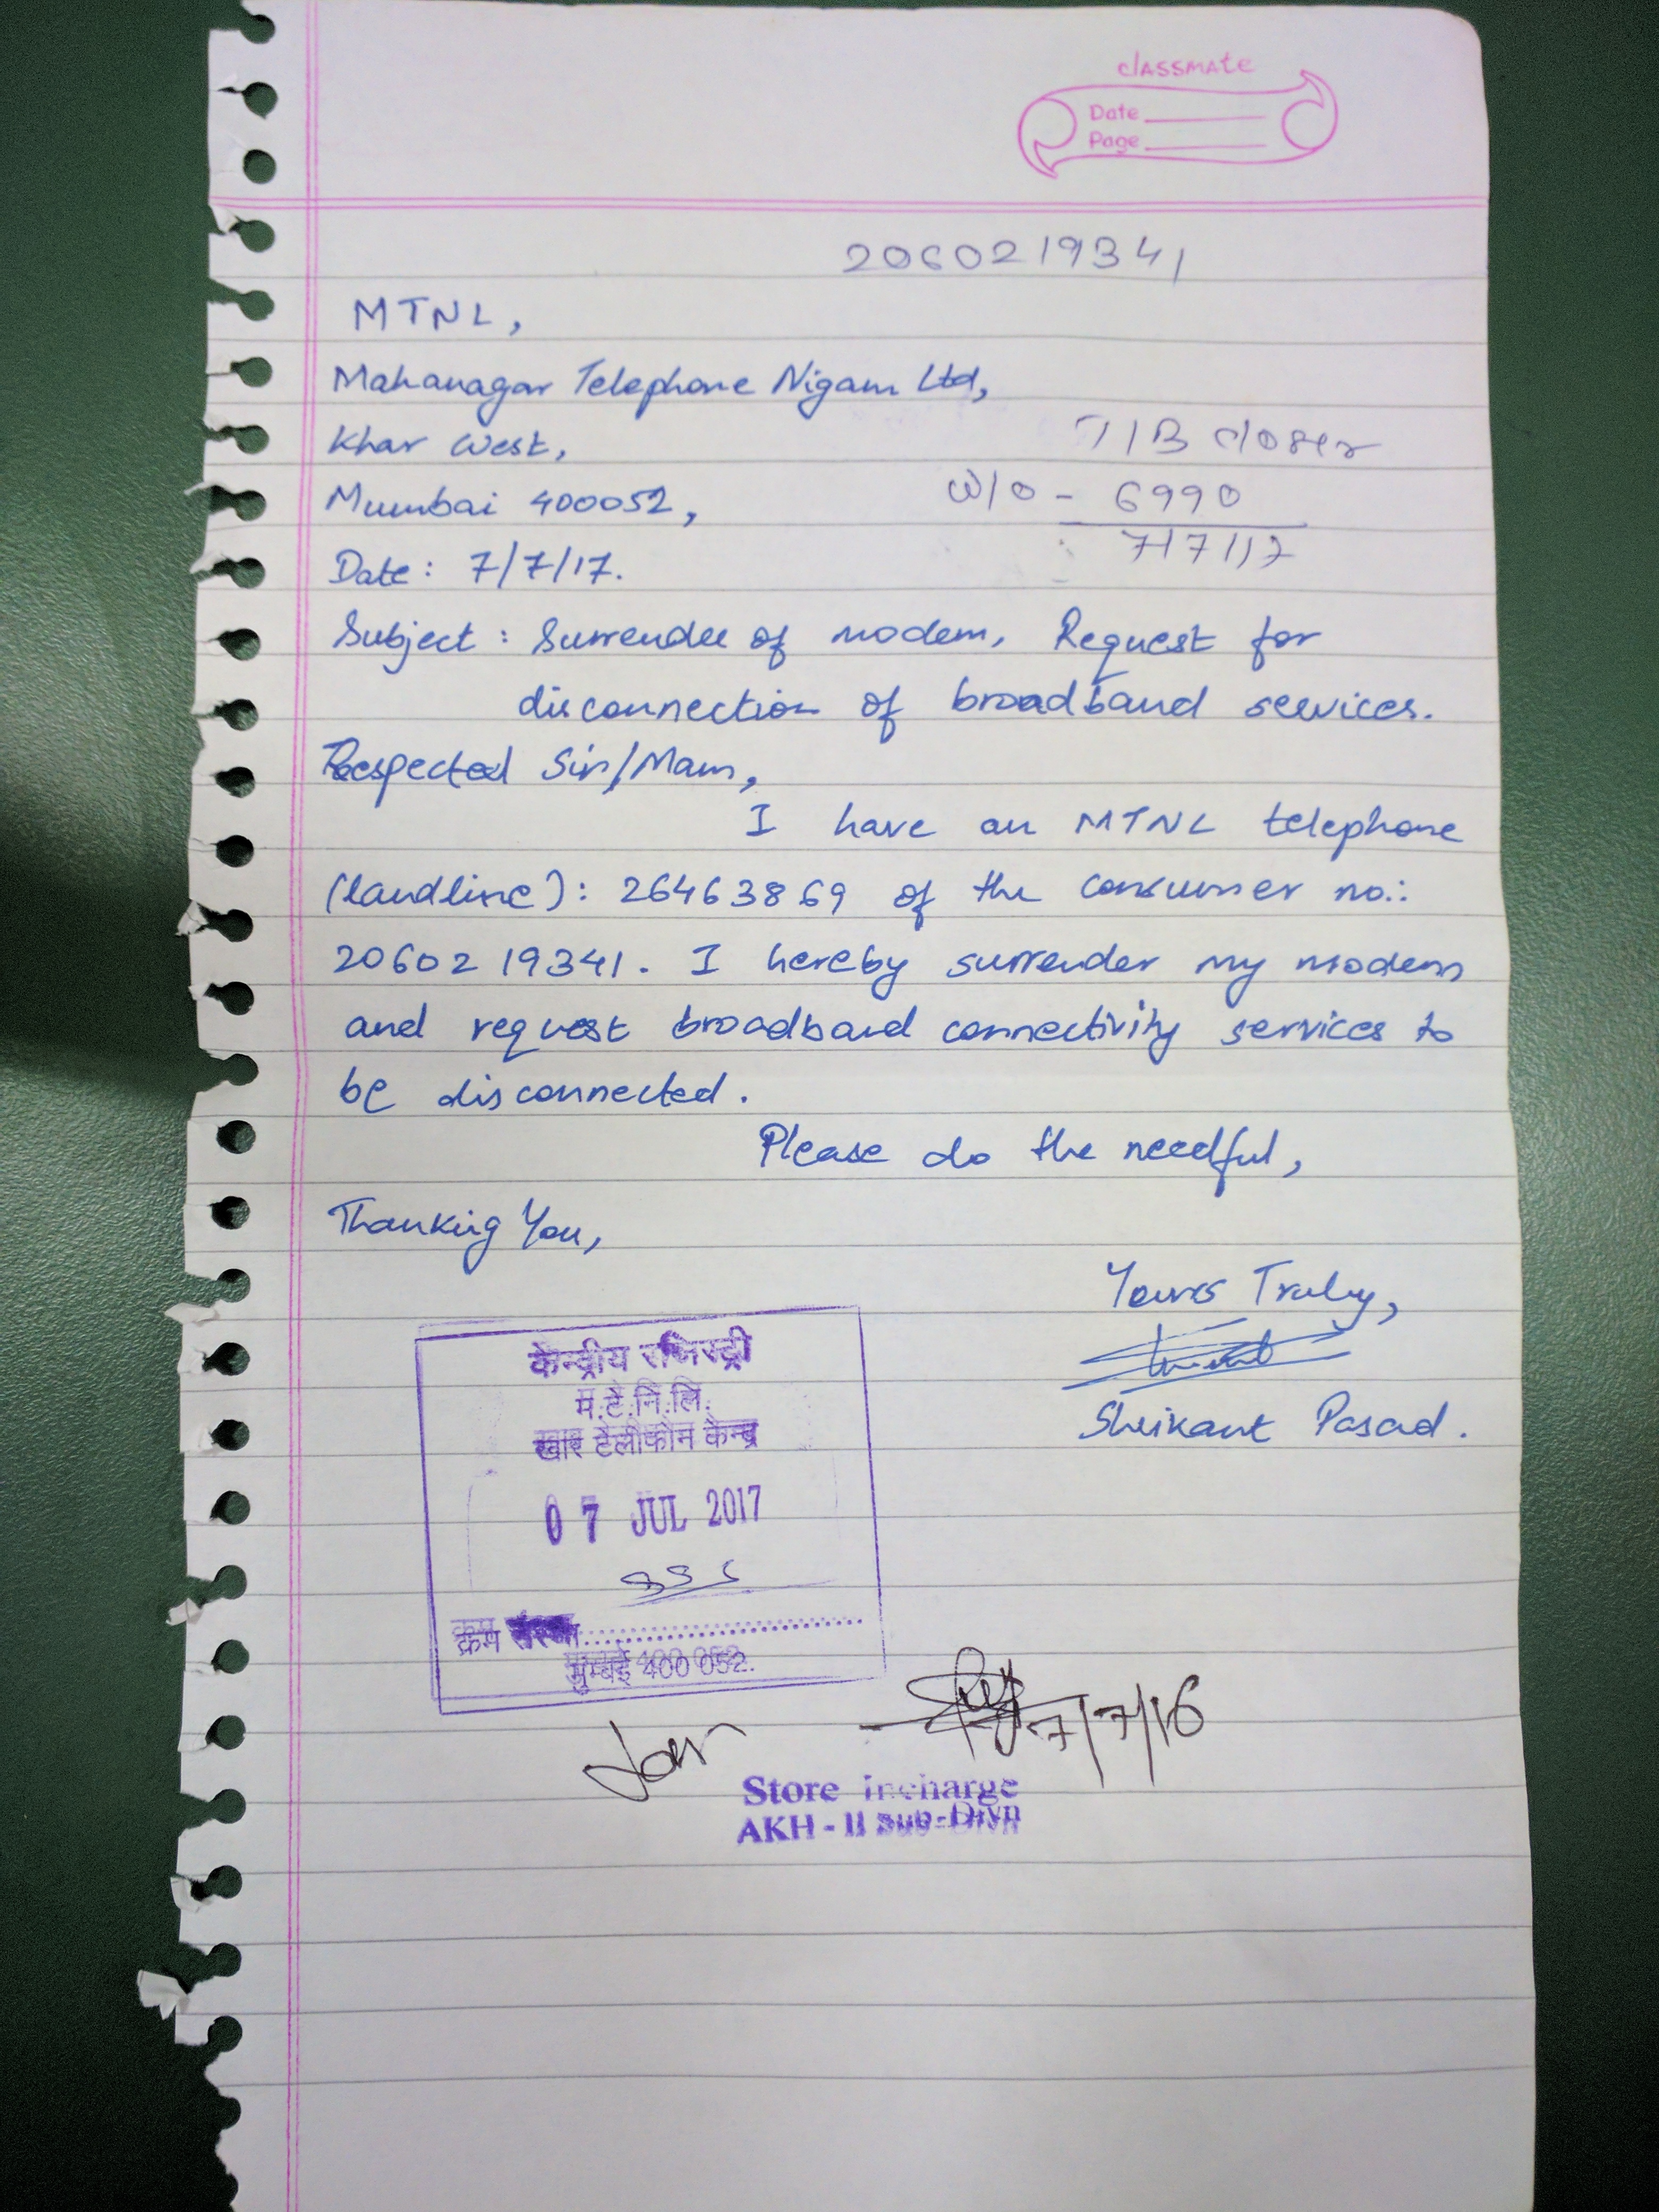 classmate
Date
Page
2060219341
MTNL,
Mahanagar Telephone Nigam Ltd,
Khar West,
T/B closer
Mumbai 400052,
W/O - 6990
7/7/17
Date: 7/7/17.
Subject: Surrender of modem, Request for
disconnection of broadband services.
Respected Sir/Mam,
I have an MTNL telephone
(landline): 26463869 of the consumer no.:
2060219341. I hereby surrender my modem
and request broadband connectivity services to
be disconnected.
Please do the needful,
Thanking You,
Yours Truly,
Shrikant Pasad.
केन्द्रीय रजिस्ट्री
म.टे.नि.लि.
खार टेलीफोन केन्द्र
07 JUL 2017
क्रम संख्या
मुम्बई 400 052.
7/7/16
Store Incharge
AKH - II Sub-Divn